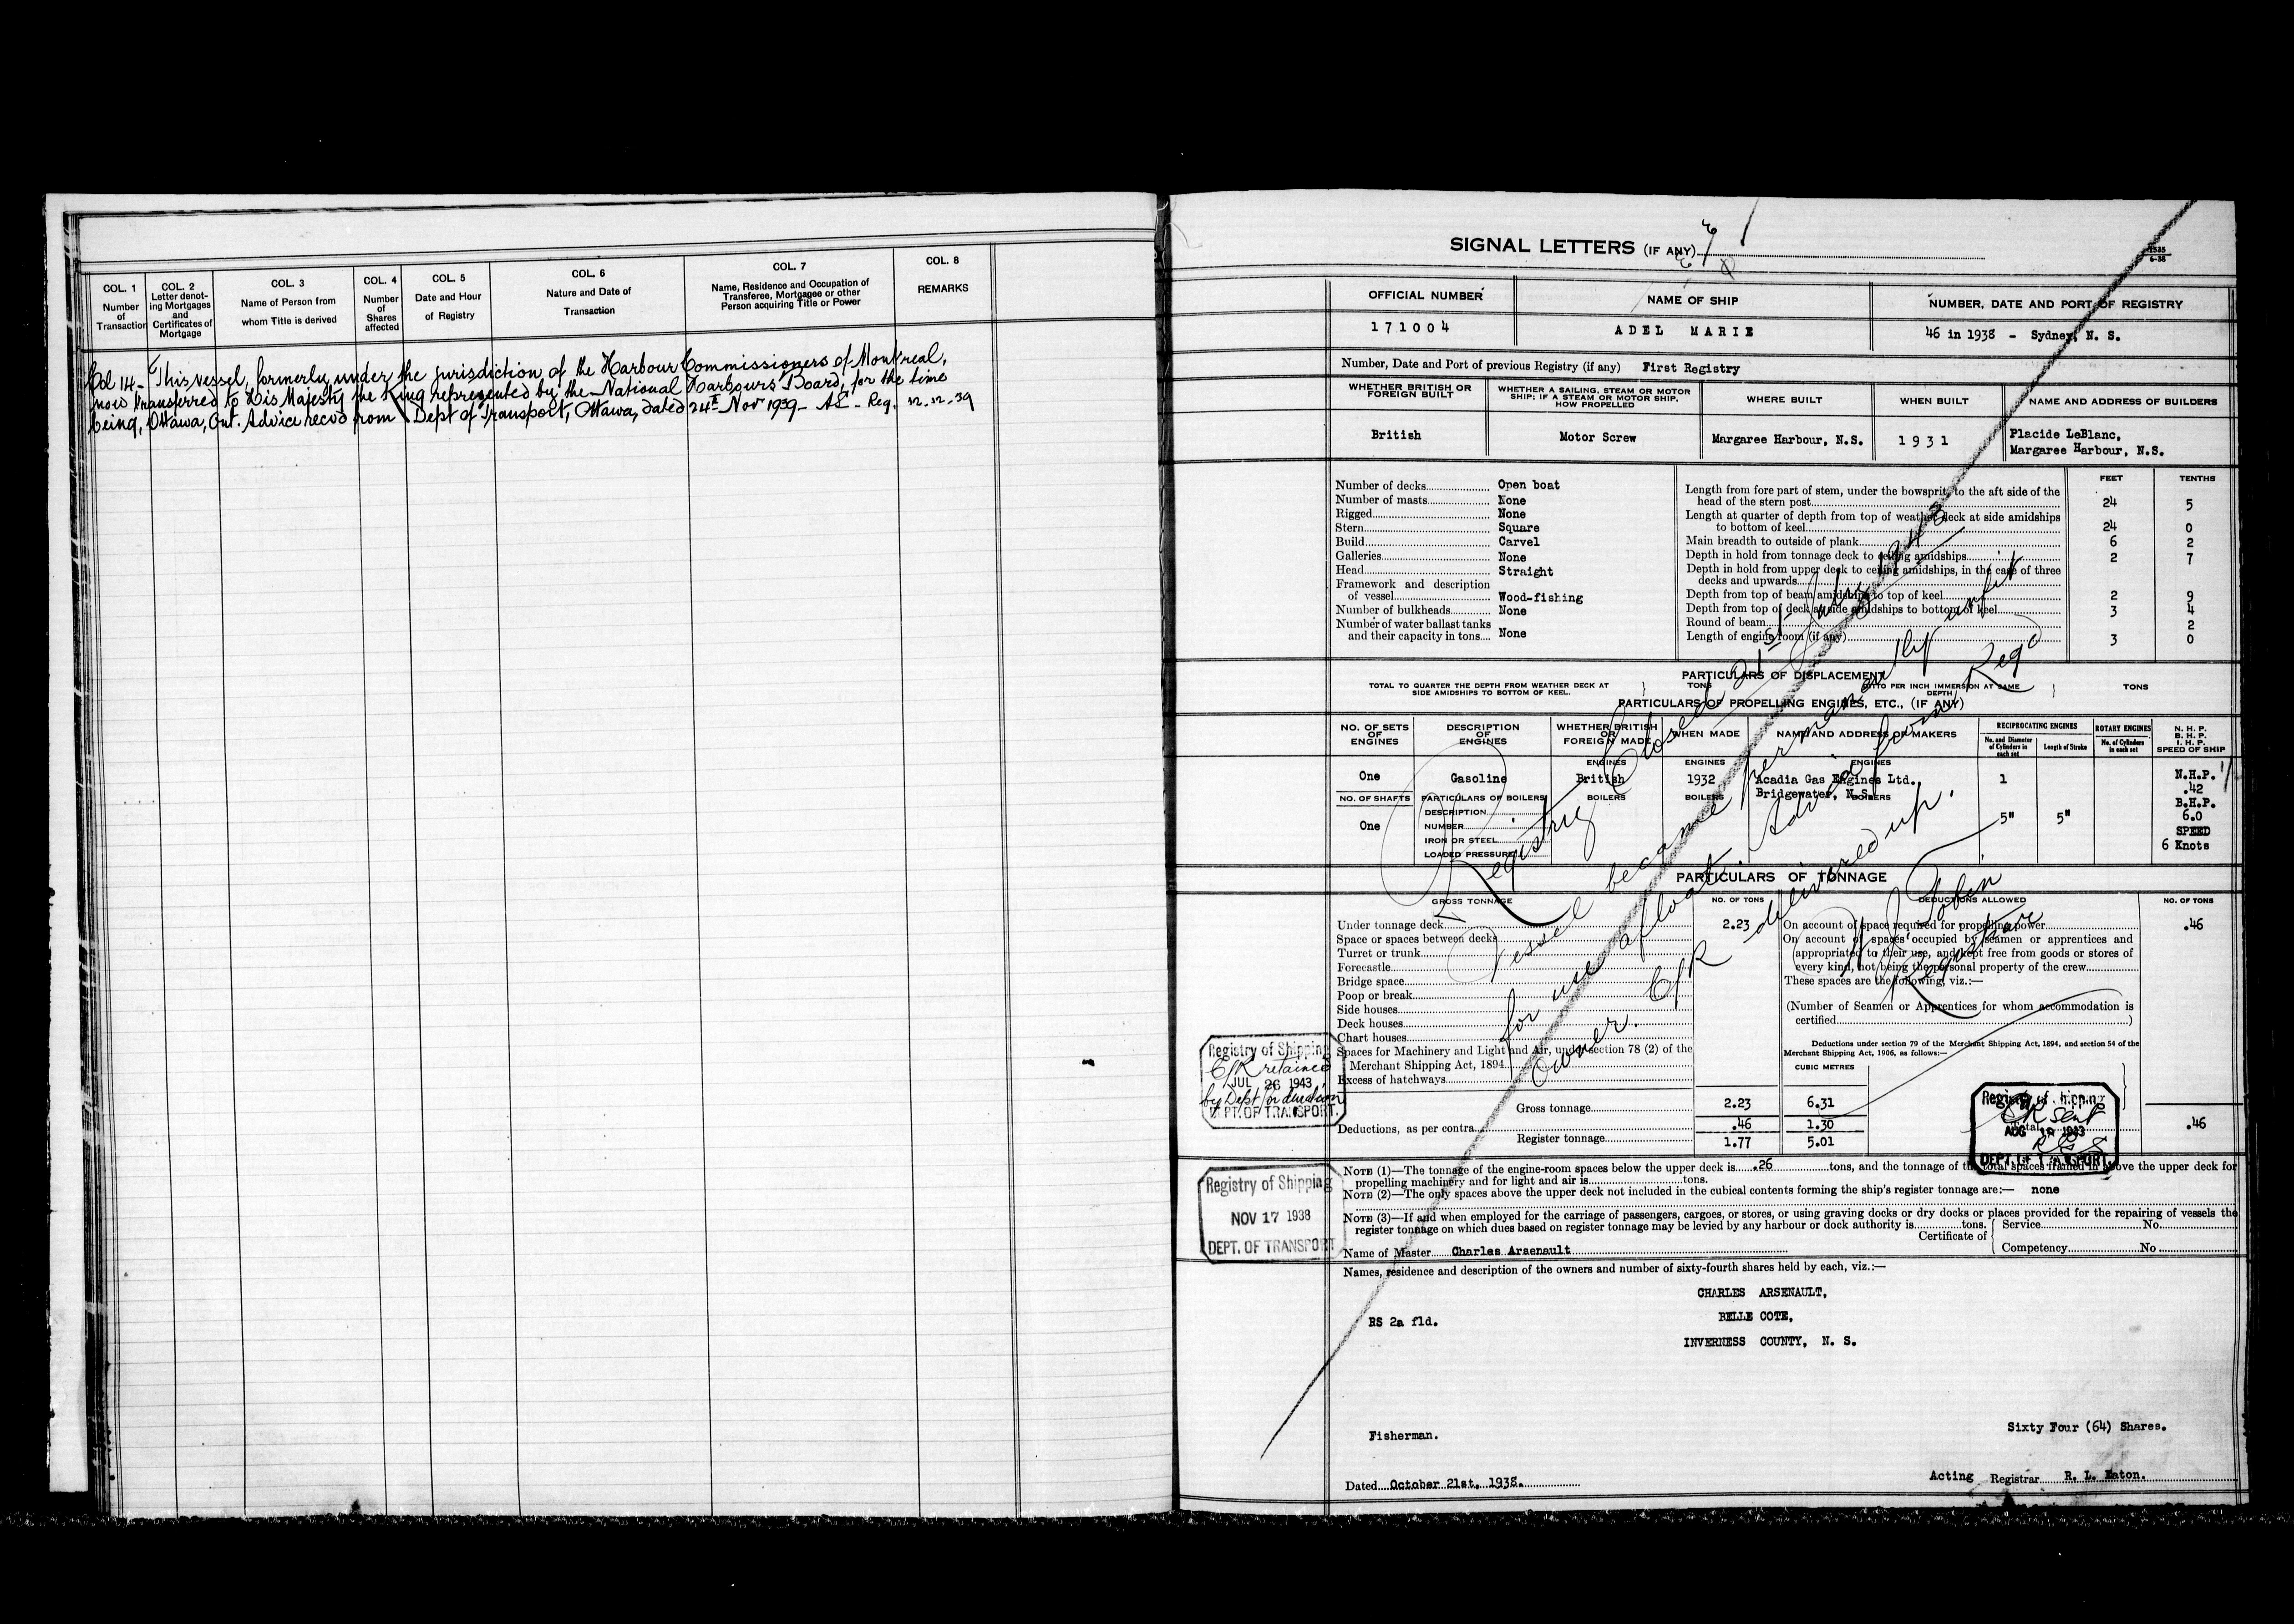 COL. 1
Number
of
Transaction
COL. 2
Letter denot-
ing Mortgages
and
Certificates of
Mortgage
COL. 3
Name of Person from
whom Title is derived
COL. 4
Number
of
Shares
affected
COL. 5
Date and Hour
of Registry
COL. 6
Nature and Date of
Transaction
COL. 7
Name, Residence and Occupation of
Transferee, Mortgagee or other
Person acquiring Title or Power
COL. 8
REMARKS
Col 14 - This vessel, formerly under the jurisdiction of the Harbour Commissioners of Montreal,
now transferred to His Majesty the King represented by the National Harbours Board, for the time
being, Ottawa, Ont. Advice recvd from Dept of Transport, Ottawa, dated 24th Nov 1939 - AE - Reg. 12-12-39
SIGNAL LETTERS (IF ANY)
1535
6-38
OFFICIAL NUMBER
NAME OF SHIP
NUMBER, DATE AND PORT OF REGISTRY
171004
ADEL MARIE
46 in 1938 - Sydney, N. S.
Number, Date and Port of previous Registry (if any) First Registry
WHETHER BRITISH OR
FOREIGN BUILT
WHETHER A SAILING, STEAM OR MOTOR
SHIP; IF A STEAM OR MOTOR SHIP,
HOW PROPELLED
WHERE BUILT
WHEN BUILT
NAME AND ADDRESS OF BUILDERS
British
Motor Screw
Margaree Harbour, N.S.
1931
Placide LeBlanc,
Margaree Harbour, N.S.
Number of decks Open boat
Number of masts None
Rigged None
Stern Square
Build Carvel
Galleries None
Head Straight
Framework and description
of vessel Wood-fishing
Number of bulkheads None
Number of water ballast tanks
and their capacity in tons None
FEET TENTHS
Length from fore part of stem, under the bowsprit, to the aft side of the
head of the stern post 24 5
Length at quarter of depth from top of weather deck at side amidships
to bottom of keel 24 0
Main breadth to outside of plank 6 2
Depth in hold from tonnage deck to ceiling amidships 2 7
Depth in hold from upper deck to ceiling amidships, in the case of three
decks and upwards
Depth from top of beam amidships to top of keel 2 9
Depth from top of deck at side amidships to bottom of keel 3 4
Round of beam 2
Length of engine room (if any) 3 0
PARTICULARS OF DISPLACEMENT
TOTAL TO QUARTER THE DEPTH FROM WEATHER DECK AT
SIDE AMIDSHIPS TO BOTTOM OF KEEL.
TONS
DITTO PER INCH IMMERSION AT SAME
DEPTH
TONS
PARTICULARS OF PROPELLING ENGINES, ETC., (IF ANY)
NO. OF SETS
OF
ENGINES
DESCRIPTION
OF
ENGINES
WHETHER BRITISH
OR
FOREIGN MADE
WHEN MADE
NAME AND ADDRESS OF MAKERS
RECIPROCATING ENGINES
No. and Diameter
of Cylinders in
each set
Length of Stroke
ROTARY ENGINES
No. of Cylinders
in each set
N. H. P.
B. H. P.
I. H. P.
SPEED OF SHIP
ENGINES
ENGINES
ENGINES
One
Gasoline
British
1932
Acadia Gas Engines Ltd.,
Bridgewater, N.S.
1
N.H.P.
.42
B.H.P.
6.0
SPEED
6 Knots
NO. OF SHAFTS
PARTICULARS OF BOILERS
BOILERS
BOILERS
BOILERS
One
DESCRIPTION
NUMBER
IRON OR STEEL
LOADED PRESSURE
5"
5"
Registry Closed 21st July 1943
Vessel became permanently unfit
for use afloat. Advice from Reg'd
owner. C/R delivered up.
Tobin
Registrar
PARTICULARS OF TONNAGE
GROSS TONNAGE
NO. OF TONS
DEDUCTIONS ALLOWED
NO. OF TONS
Under tonnage deck 2.23
Space or spaces between decks
Turret or trunk
Forecastle
Bridge space
Poop or break
Side houses
Deck houses
Chart houses
Spaces for Machinery and Light and Air, under section 78 (2) of the
Merchant Shipping Act, 1894
Excess of hatchways
Gross tonnage 2.23 6.31
Deductions, as per contra .46 1.30
Register tonnage 1.77 5.01
On account of space required for propelling power .46
On account of spaces occupied by seamen or apprentices and
appropriated to their use, and kept free from goods or stores of
every kind, not being the personal property of the crew
These spaces are the following, viz.:—
(Number of Seamen or Apprentices for whom accommodation is
certified )
Deductions under section 79 of the Merchant Shipping Act, 1894, and section 54 of the
Merchant Shipping Act, 1906, as follows:—
CUBIC METRES
Total .46
Registry of Shipping
C/R retained
JUL 26 1943
by Dept for duration
DEPT. OF TRANSPORT.
Registry of Shipping
C/R sent
AUG 1943
DEPT. OF TRANSPORT
Registry of Shipping
NOV 17 1938
DEPT. OF TRANSPORT
NOTE (1)—The tonnage of the engine-room spaces below the upper deck is .26 tons, and the tonnage of the total spaces framed in above the upper deck for
propelling machinery and for light and air is tons.
NOTE (2)—The only spaces above the upper deck not included in the cubical contents forming the ship's register tonnage are:— none
NOTE (3)—If and when employed for the carriage of passengers, cargoes, or stores, or using graving docks or dry docks or places provided for the repairing of vessels the
register tonnage on which dues based on register tonnage may be levied by any harbour or dock authority is tons.
Certificate of
Service No.
Competency No.
Name of Master Charles Arsenault
Names, residence and description of the owners and number of sixty-fourth shares held by each, viz.:—
CHARLES ARSENAULT,
BELLE COTE,
INVERNESS COUNTY, N. S.
RS 2a fld.
Fisherman.
Sixty Four (64) Shares.
Dated October 21st, 1938.
Acting Registrar R. L. Eaton.